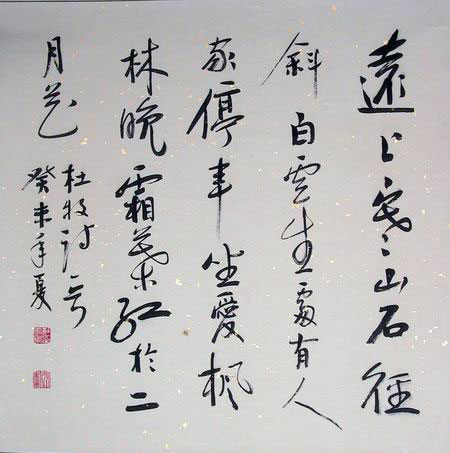 遠上寒山石徑
斜白雲生處有人
家停車坐愛楓
林晚霜葉紅於二
月花
杜牧詩
癸未年夏